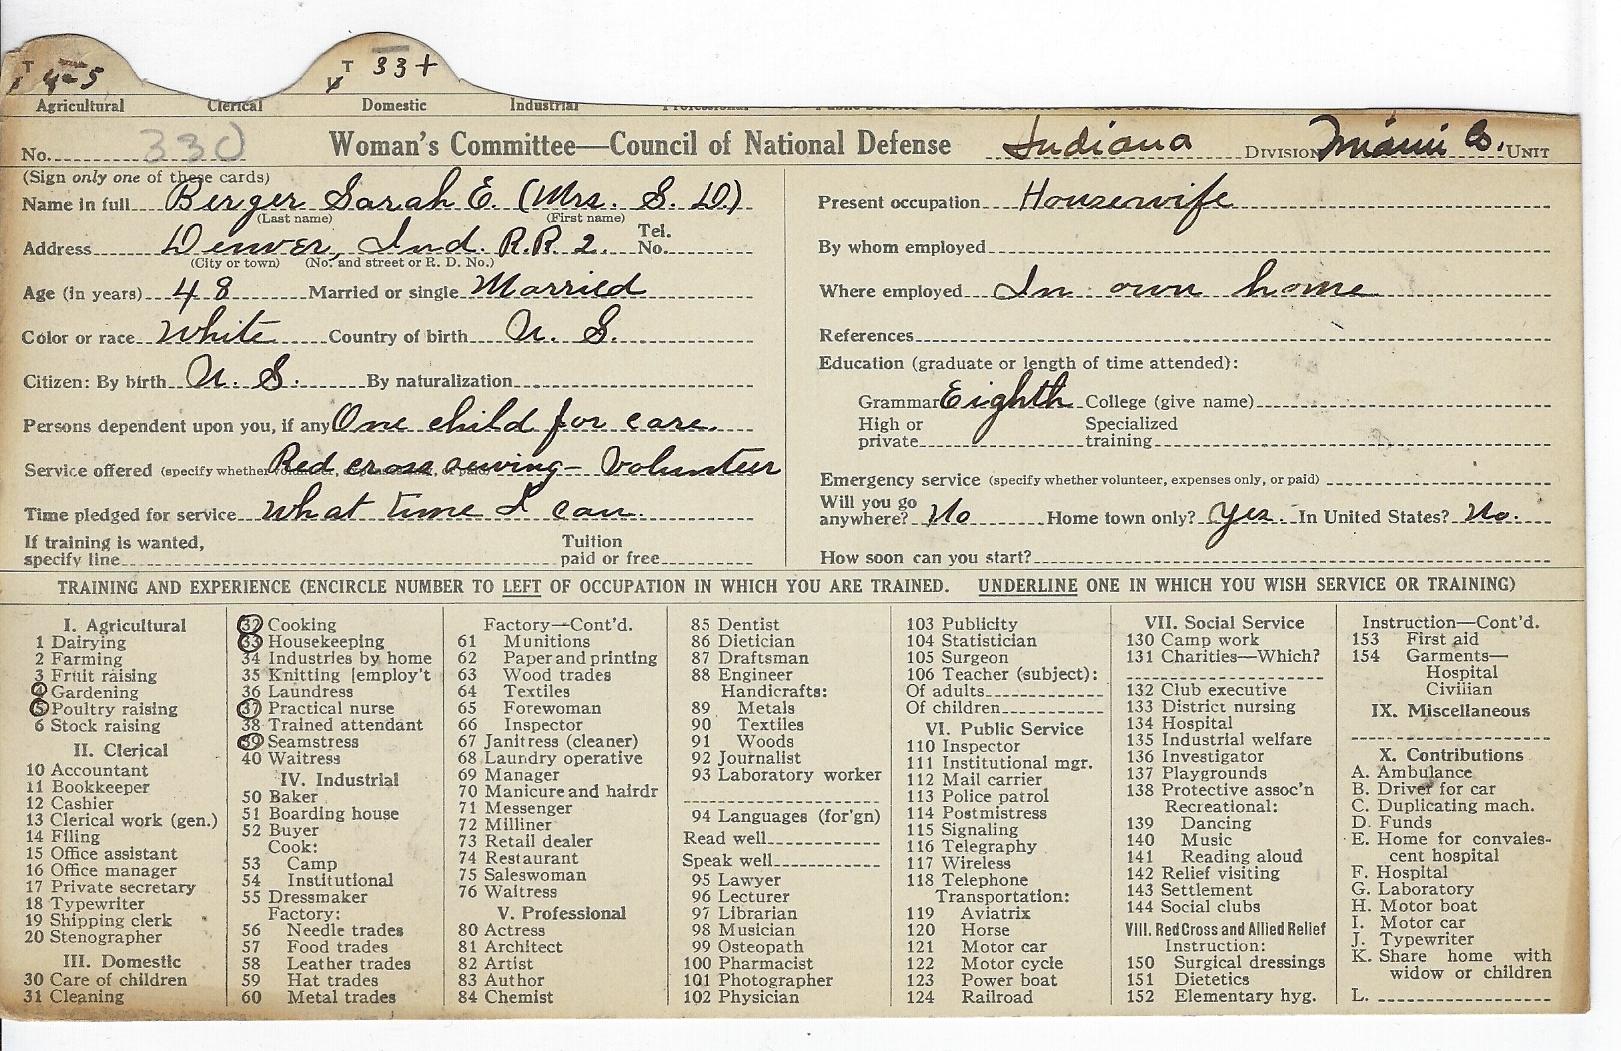 T 4-5 T 33+
Agricultural Clerical Domestic Industrial
No. 330 Woman's Committee—Council of National Defense Indiana DIVISION Miami Co. UNIT
(Sign only one of these cards)
Name in full Berger Sarah E. (Mrs. S. D.)
(Last name) (First name)
Address Denver, Ind. R.R. 2. Tel. No.
(City or town) (No. and street or R. D. No.)
Age (in years) 48 Married or single Married
Color or race White Country of birth U. S.
Citizen: By birth U. S. By naturalization
Persons dependent upon you, if any One child for care.
Service offered (specify whether volunteer, expenses only, or paid) Red cross sewing- Volunteer
Time pledged for service What time I can.
If training is wanted, specify line Tuition paid or free
Present occupation Housewife
By whom employed
Where employed In own home
References
Education (graduate or length of time attended):
Grammar Eighth College (give name)
High or private Specialized training
Emergency service (specify whether volunteer, expenses only, or paid)
Will you go anywhere? No Home town only? Yes. In United States? No.
How soon can you start?
TRAINING AND EXPERIENCE (ENCIRCLE NUMBER TO LEFT OF OCCUPATION IN WHICH YOU ARE TRAINED. UNDERLINE ONE IN WHICH YOU WISH SERVICE OR TRAINING)
I. Agricultural
1 Dairying
2 Farming
3 Fruit raising
4 Gardening
5 Poultry raising
6 Stock raising
II. Clerical
10 Accountant
11 Bookkeeper
12 Cashier
13 Clerical work (gen.)
14 Filing
15 Office assistant
16 Office manager
17 Private secretary
18 Typewriter
19 Shipping clerk
20 Stenographer
III. Domestic
30 Care of children
31 Cleaning
32 Cooking
33 Housekeeping
34 Industries by home
35 Knitting [employ't
36 Laundress
37 Practical nurse
38 Trained attendant
39 Seamstress
40 Waitress
IV. Industrial
50 Baker
51 Boarding house
52 Buyer
Cook:
53 Camp
54 Institutional
55 Dressmaker
Factory:
56 Needle trades
57 Food trades
58 Leather trades
59 Hat trades
60 Metal trades
Factory—Cont'd.
61 Munitions
62 Paper and printing
63 Wood trades
64 Textiles
65 Forewoman
66 Inspector
67 Janitress (cleaner)
68 Laundry operative
69 Manager
70 Manicure and hairdr
71 Messenger
72 Milliner
73 Retail dealer
74 Restaurant
75 Saleswoman
76 Waitress
V. Professional
80 Actress
81 Architect
82 Artist
83 Author
84 Chemist
85 Dentist
86 Dietician
87 Draftsman
88 Engineer
Handicrafts:
89 Metals
90 Textiles
91 Woods
92 Journalist
93 Laboratory worker
94 Languages (for'gn)
Read well
Speak well
95 Lawyer
96 Lecturer
97 Librarian
98 Musician
99 Osteopath
100 Pharmacist
101 Photographer
102 Physician
103 Publicity
104 Statistician
105 Surgeon
106 Teacher (subject):
Of adults
Of children
VI. Public Service
110 Inspector
111 Institutional mgr.
112 Mail carrier
113 Police patrol
114 Postmistress
115 Signaling
116 Telegraphy
117 Wireless
118 Telephone
Transportation:
119 Aviatrix
120 Horse
121 Motor car
122 Motor cycle
123 Power boat
124 Railroad
VII. Social Service
130 Camp work
131 Charities—Which?
132 Club executive
133 District nursing
134 Hospital
135 Industrial welfare
136 Investigator
137 Playgrounds
138 Protective assoc'n
Recreational:
139 Dancing
140 Music
141 Reading aloud
142 Relief visiting
143 Settlement
144 Social clubs
VIII. Red Cross and Allied Relief
Instruction:
150 Surgical dressings
151 Dietetics
152 Elementary hyg.
Instruction—Cont'd.
153 First aid
154 Garments—
Hospital
Civilian
IX. Miscellaneous
X. Contributions
A. Ambulance
B. Driver for car
C. Duplicating mach.
D. Funds
E. Home for convales-
cent hospital
F. Hospital
G. Laboratory
H. Motor boat
I. Motor car
J. Typewriter
K. Share home with
widow or children
L.